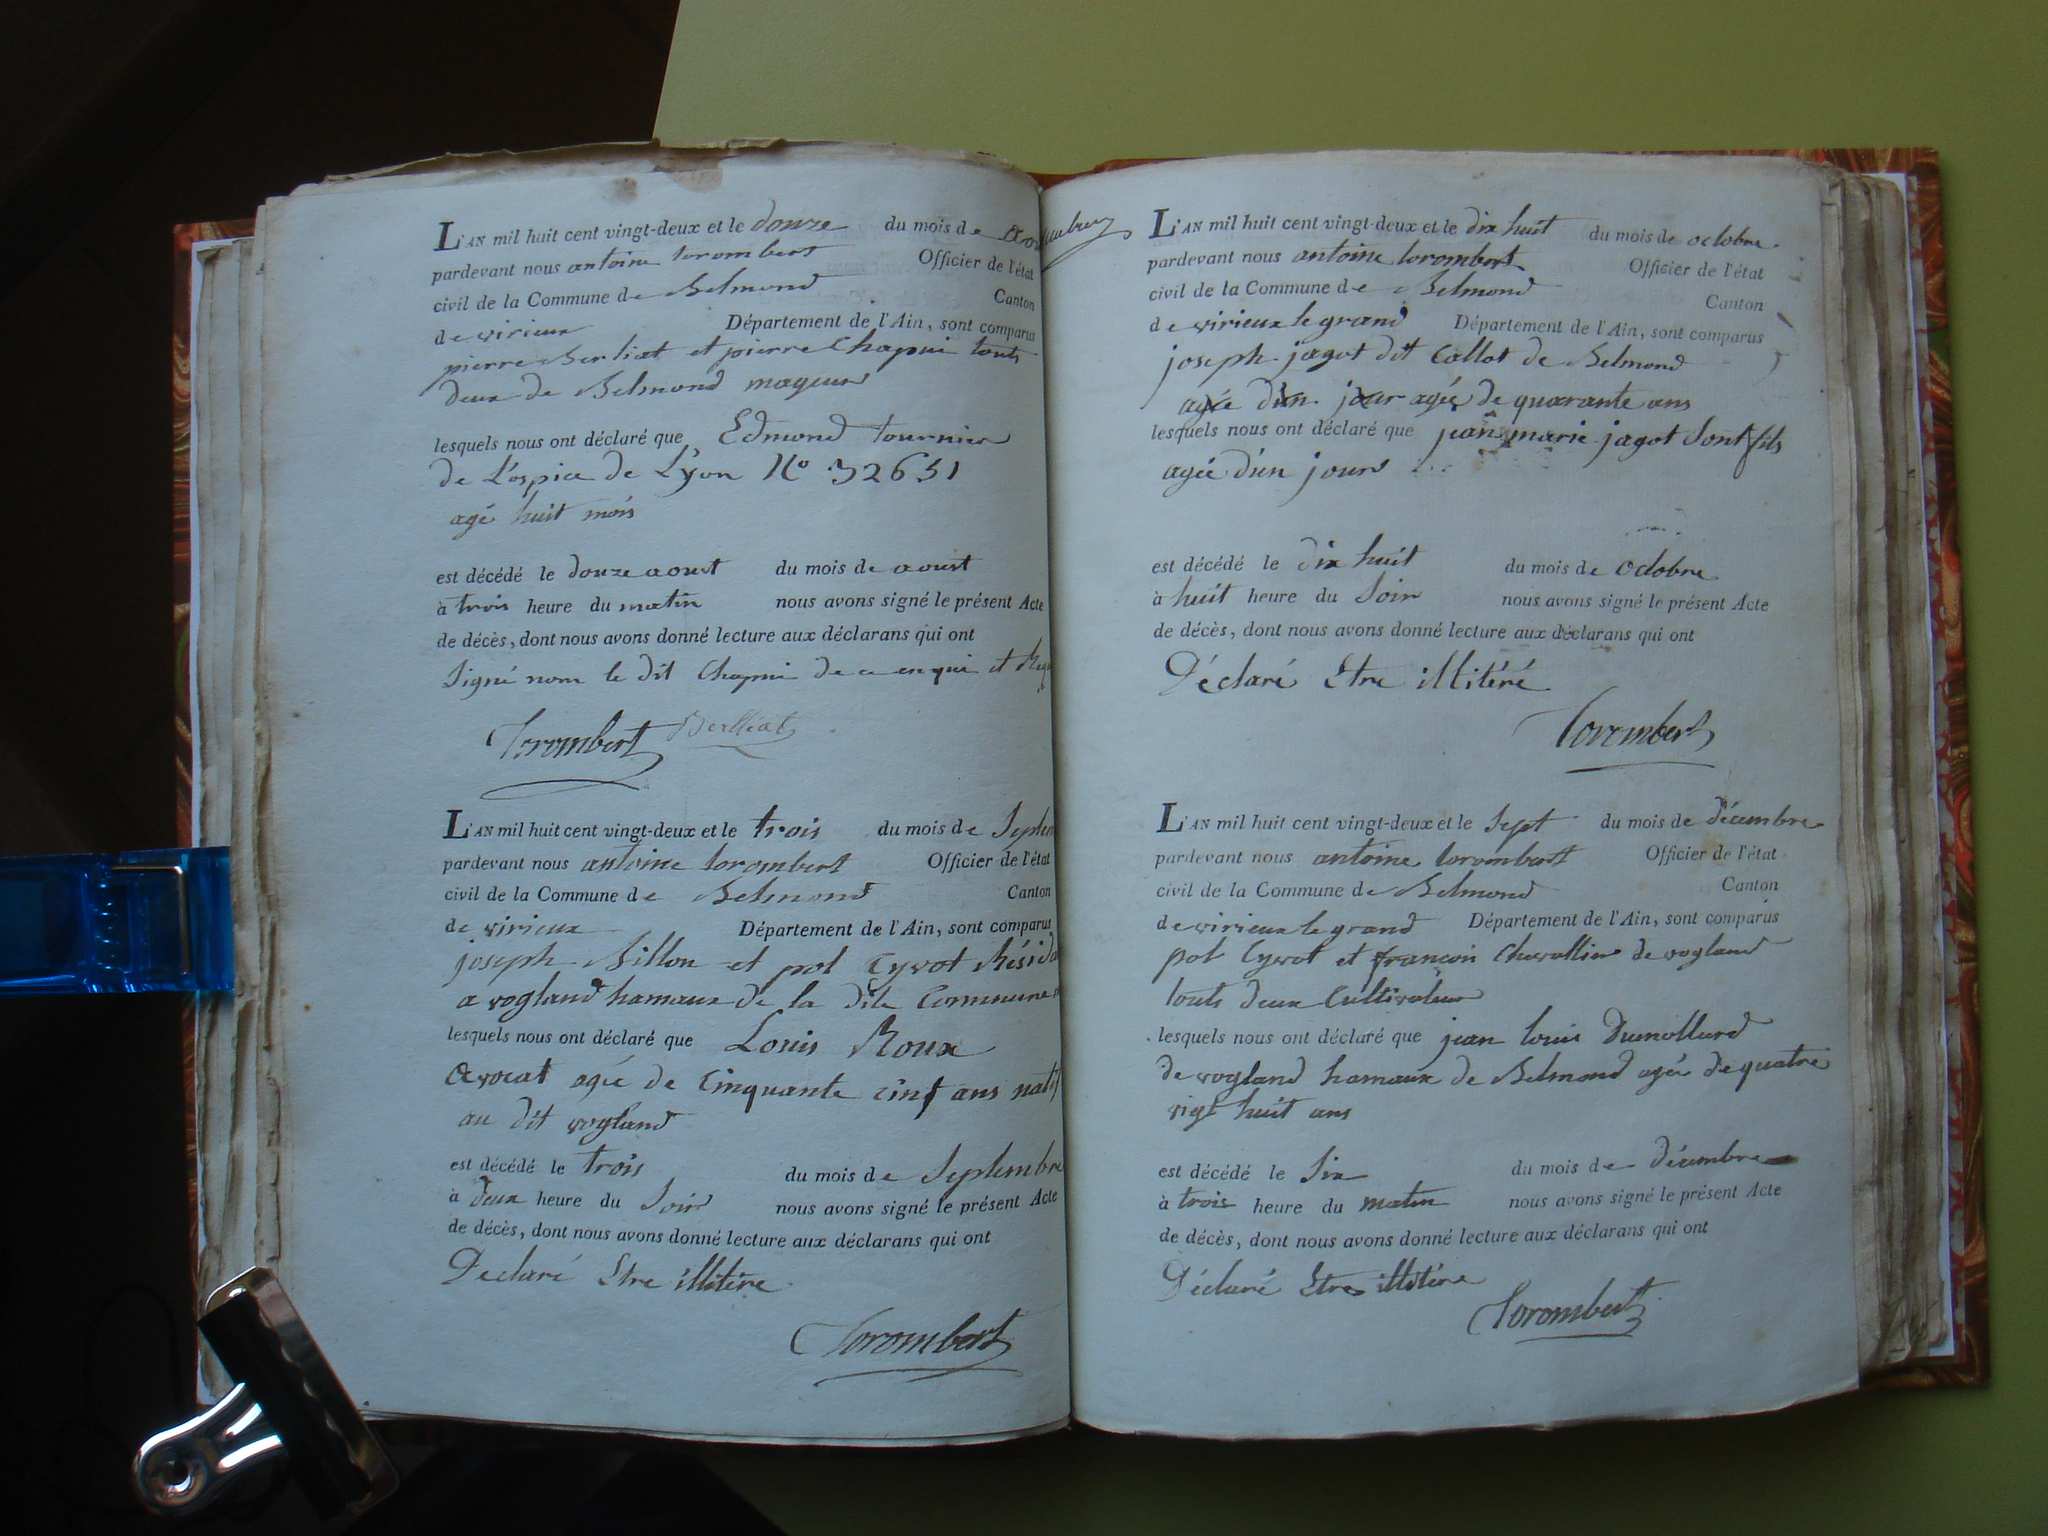 L'AN mil huit cent vingt-deux et le douze du mois de
pardevant nous antoine torombert Officier de l'état
civil de la Commune de Belmond Canton
de virieux Département de l'Ain, sont comparus
pierre Berliat et pierre Chapui touts
deux de Belmond mageur
lesquels nous ont déclaré que Edmond tournier
de L'ospice de Lyon No 32651
agé huit mois
est décédé le douze aoust du mois de aoust
à trois heure du matin nous avons signé le présent Acte
de décès, dont nous avons donné lecture aux déclarans qui ont
Signé nom le dit Chapui de ce enqui et
Torombert Berlliat
L'AN mil huit cent vingt-deux et le trois du mois de Septem
pardevant nous antoine torombert Officier de l'état
civil de la Commune de Belmond Canton
de virieux Département de l'Ain, sont comparus
joseph Billon et pol Cyvot Résida
a vogland hamaux de la dite Commune
lesquels nous ont déclaré que Louis Roux
avocat agée de Cinquante cinq ans natif
au dit vogland
est décédé le trois du mois de Septembre
à deux heure du Soir nous avons signé le présent Acte
de décès, dont nous avons donné lecture aux déclarans qui ont
Déclaré Etre illitére
Torombert
L'AN mil huit cent vingt-deux et le dix huit du mois de octobre
pardevant nous antoine torombert Officier de l'état
civil de la Commune de Belmond Canton
de virieux le grand Département de l'Ain, sont comparus
joseph jagot dit Collot de Belmond
agée d'un jour agée de quarante ans
lesquels nous ont déclaré que jean marie jagot Sont fils
agée d'un jours
est décédé le dix huit du mois de octobre
à huit heure du Soir nous avons signé le présent Acte
de décès, dont nous avons donné lecture aux déclarans qui ont
Déclaré Etre illitéré
Torombert
L'AN mil huit cent vingt-deux et le Sept du mois de décembre
pardevant nous antoine torombert Officier de l'état
civil de la Commune de Belmond Canton
de virieux le grand Département de l'Ain, sont comparus
pol Cyvot et françoi Chevallier de vogland
touts deux Cultivateur
lesquels nous ont déclaré que jean louis Dumollard
de vogland hamaux de Belmond agée de quatre
vigt huit ans
est décédé le Six du mois de décembre
à trois heure du matin nous avons signé le présent Acte
de décès, dont nous avons donné lecture aux déclarans qui ont
Déclaré Etre illitére
Torombert